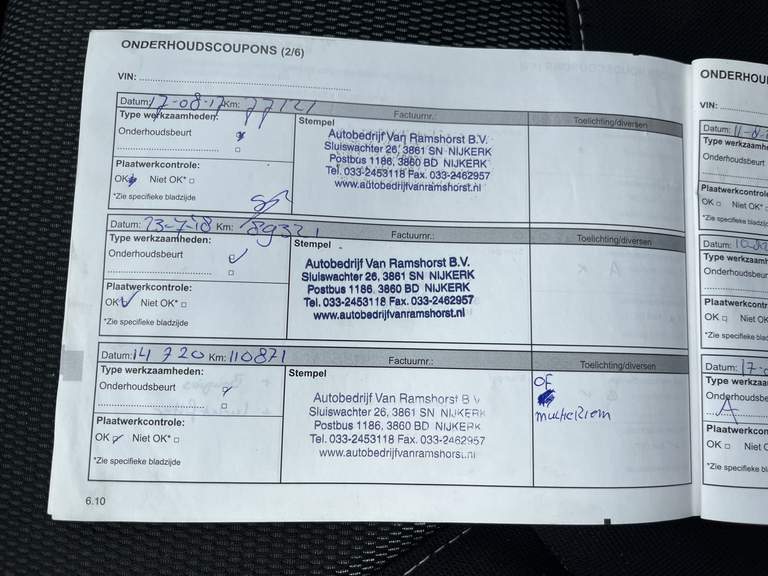 ONDERHOUDSCOUPONS (2/6)
VIN:
Datum: 17-08-17 Km: 77121
Factuurnr.:
Toelichting/diversen
Type werkzaamheden:
Onderhoudsbeurt
Plaatwerkcontrole:
OK Niet OK*
*Zie specifieke bladzijde
Stempel
Autobedrijf Van Ramshorst B.V.
Sluiswachter 26, 3861 SN NIJKERK
Postbus 1186, 3860 BD NIJKERK
Tel. 033-2453118 Fax. 033-2462957
www.autobedrijfvanramshorst.nl
Datum: 23-7-18 Km: 89321
Factuurnr.:
Toelichting/diversen
Type werkzaamheden:
Onderhoudsbeurt
Plaatwerkcontrole:
OK Niet OK*
*Zie specifieke bladzijde
Stempel
Autobedrijf Van Ramshorst B.V.
Sluiswachter 26, 3861 SN NIJKERK
Postbus 1186, 3860 BD NIJKERK
Tel. 033-2453118 Fax. 033-2462957
www.autobedrijfvanramshorst.nl
Datum: 14 7 20 Km: 110871
Factuurnr.:
Toelichting/diversen
Type werkzaamheden:
Onderhoudsbeurt
Plaatwerkcontrole:
OK Niet OK*
*Zie specifieke bladzijde
Stempel
Autobedrijf Van Ramshorst B V
Sluiswachter 26, 3861 SN NIJKERK
Postbus 1186, 3860 BD NIJKERK
Tel. 033-2453118 Fax. 033-2462957
www.autobedrijfvanramshorst.nl
OF
multieriem
6.10
ONDERHOU
VIN:
Datum:
Type werkzaamhe
Onderhoudsbeu
Plaatwerkcontrol
OK Niet OK*
*Zie specifieke bladz
Datum:
Type werkzaam
Onderhoudsbeu
Plaatwerkcontr
OK Niet OK
*Zie specifieke bla
Datum:
Type werkzaa
Onderhoudsbe
A
Plaatwerkcon
OK Niet C
*Zie specifieke b